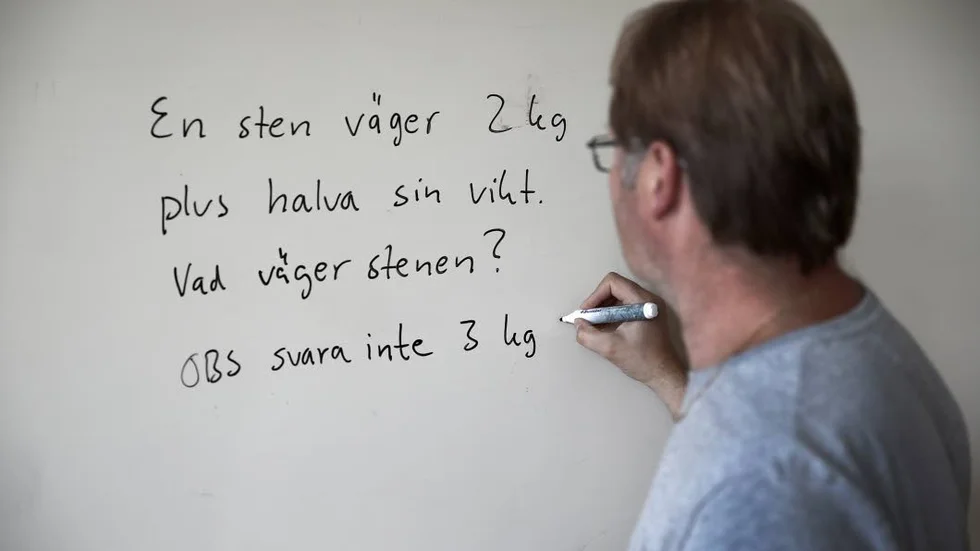 En sten väger 2 kg
plus halva sin vikt.
Vad väger stenen?
OBS svara inte 3 kg